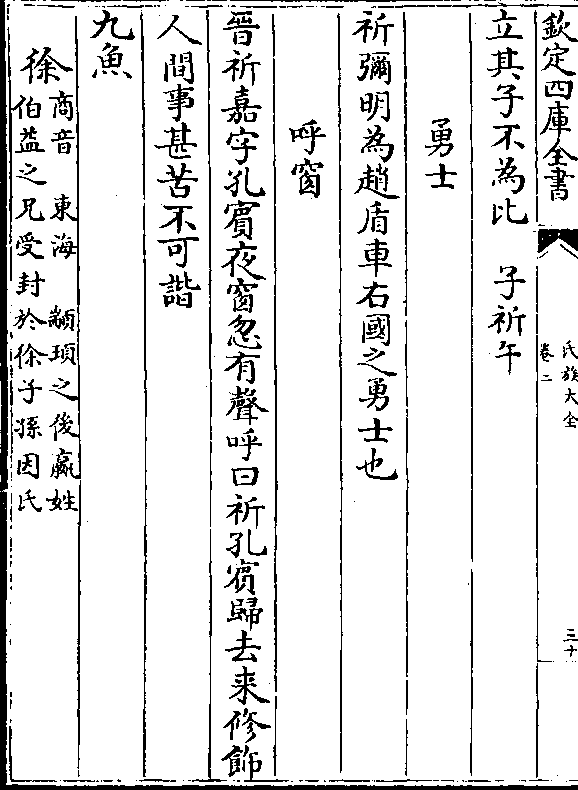 欽定四庫全書
氏族大全
卷二
三十
立其子不為比　子祈午
勇士
祈彌明為趙盾車右國之勇士也
呼窗
晉祈嘉字孔賔夜窗忽有聲呼曰祈孔賔歸去来修飾
人間事甚苦不可諧
九魚
徐
商音　東海　顓頊之後嬴姓
伯益之兄受封於徐子孫因氏